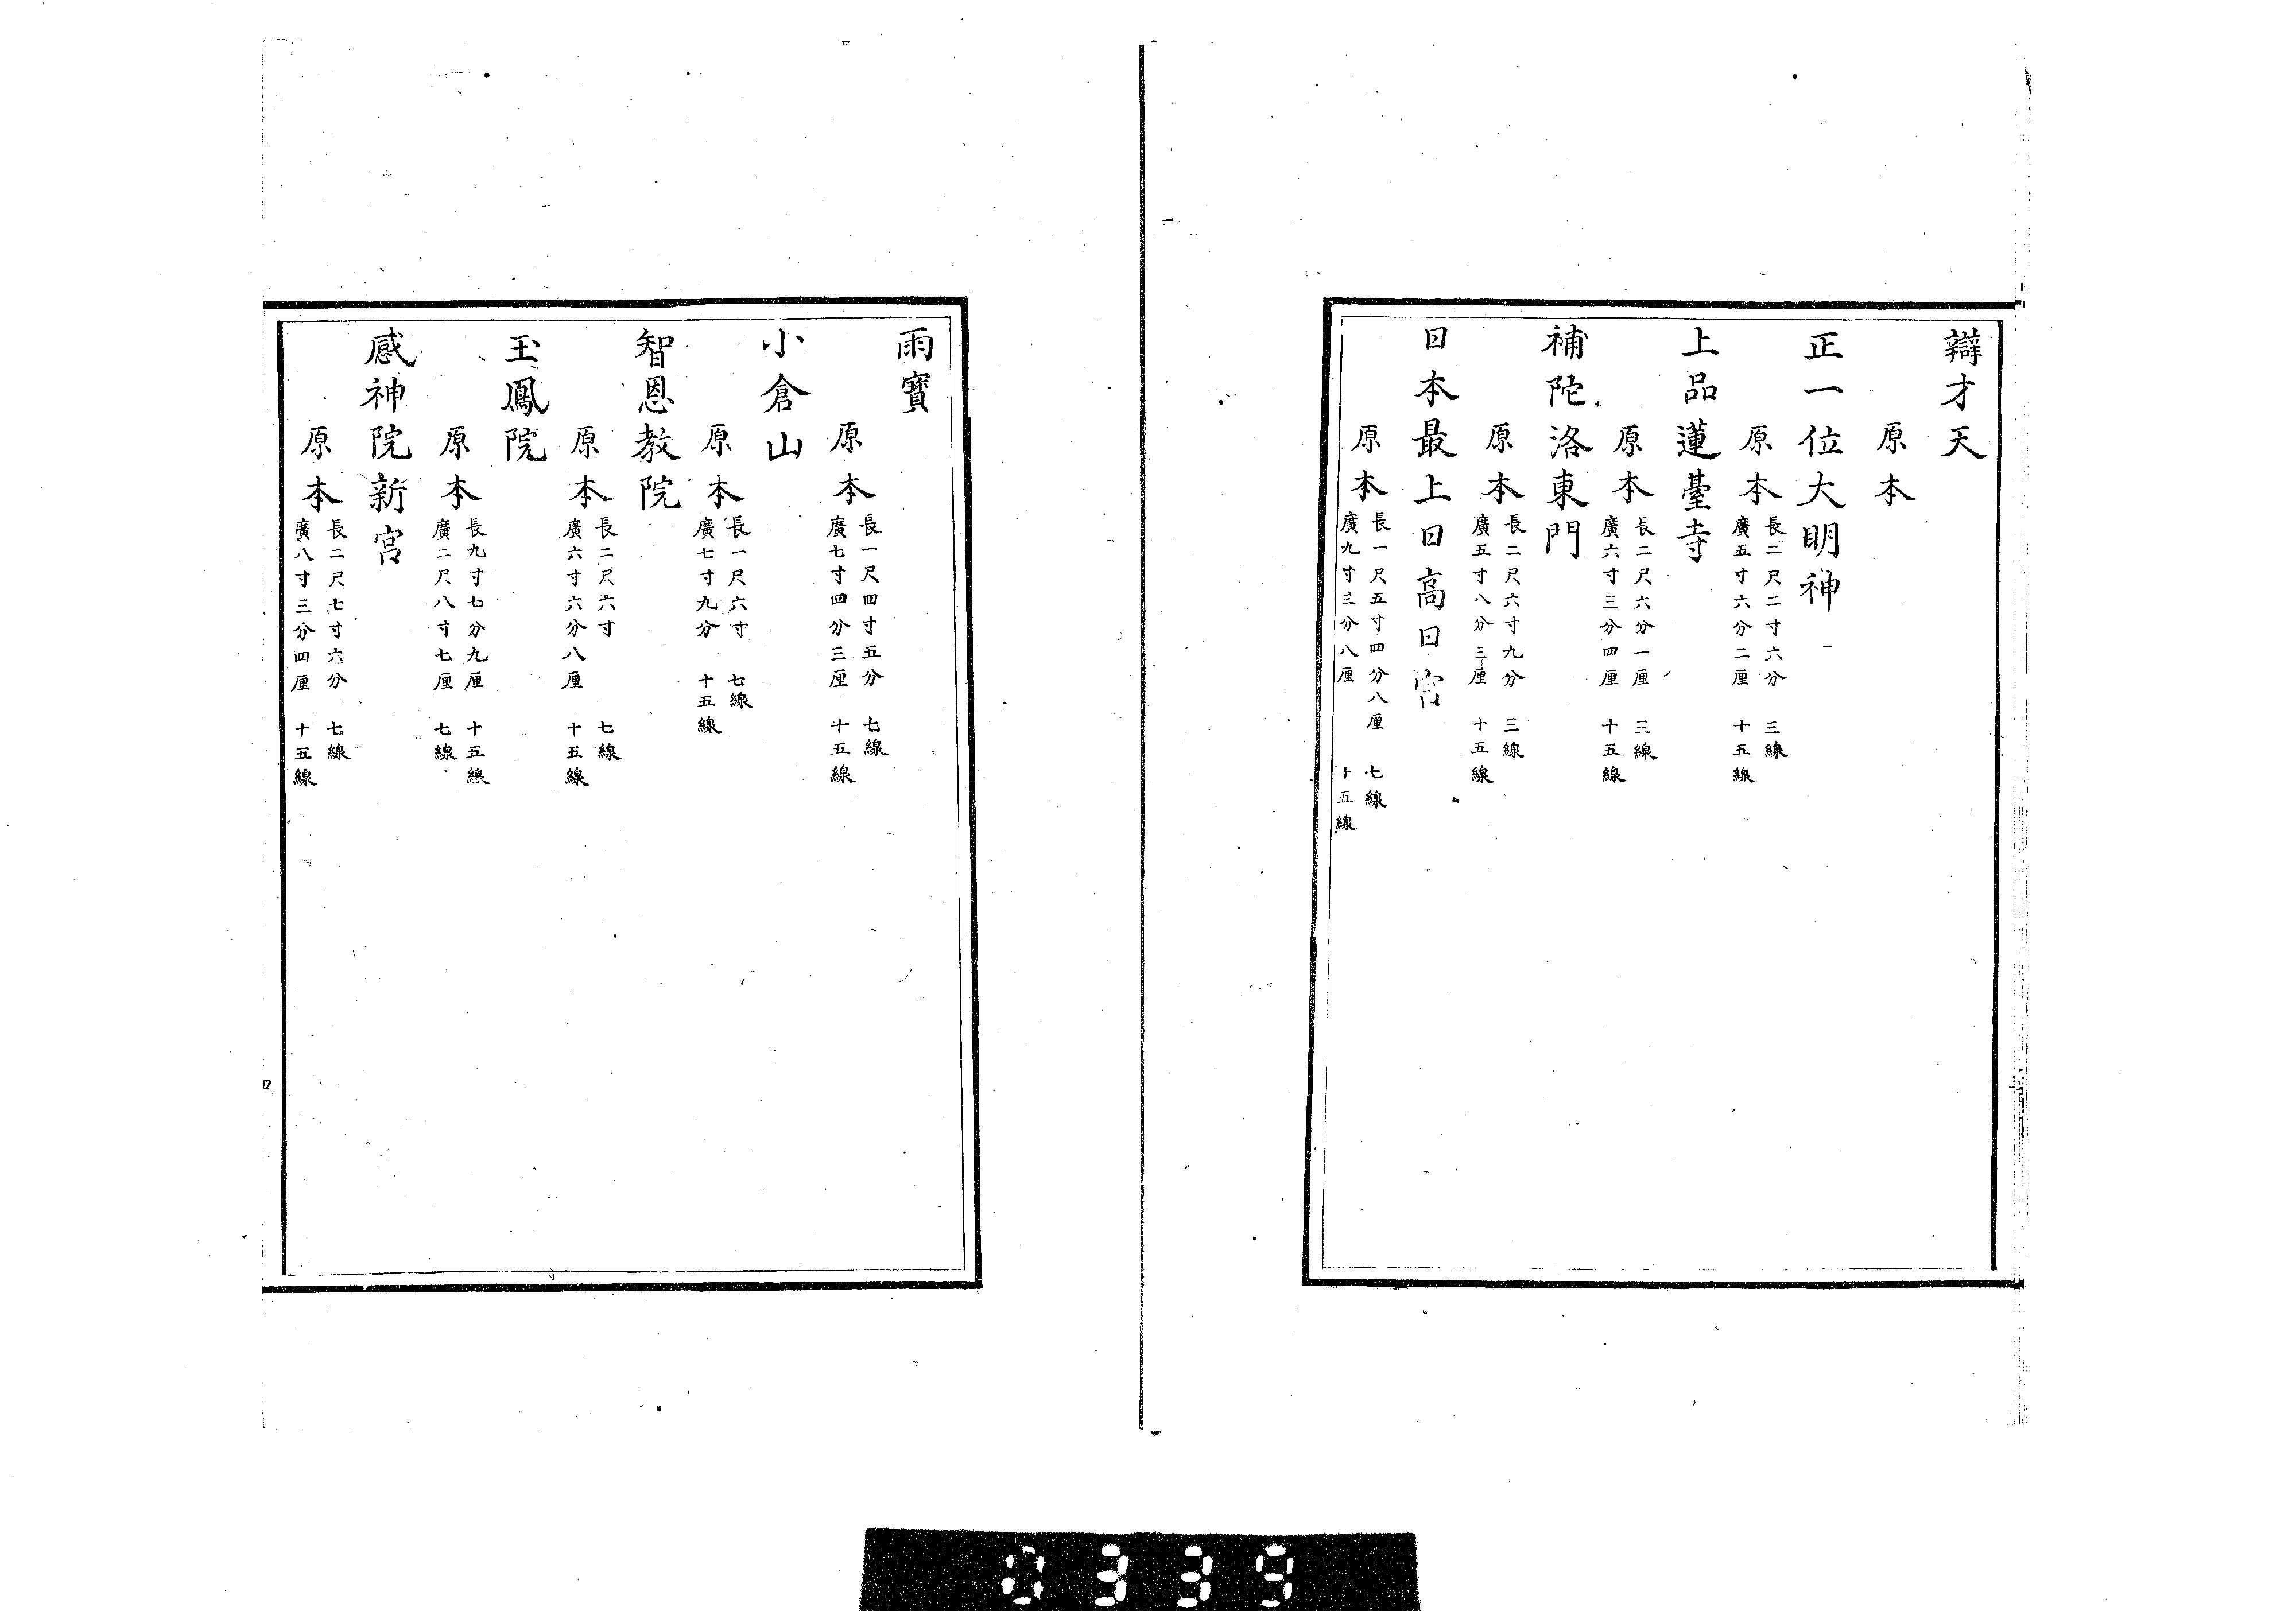 辯才天
原本
正一位大明神
原本
長二尺二寸六分 三線
廣五寸六分二厘 十五線
上品蓮臺寺
原本
長二尺六分一厘 三線
廣六寸三分四厘 十五線
補陀洛東門
原本
長二尺六寸九分 三線
廣五寸八分三厘 十五線
日本最上日高日宮
原本
長一尺五寸四分八厘 七線
廣九寸三分八厘 十五線
雨寶
原本
長一尺四寸五分 七線
廣七寸四分三厘 十五線
小倉山
原本
長一尺六寸 七線
廣七寸九分 十五線
智恩教院
原本
長二尺六寸 七線
廣六寸六分八厘 十五線
玉鳳院
原本
長九寸七分九厘 十五線
廣二尺八寸七厘 七線
感神院新宮
原本
長二尺七寸六分 七線
廣八寸三分四厘 十五線
0339